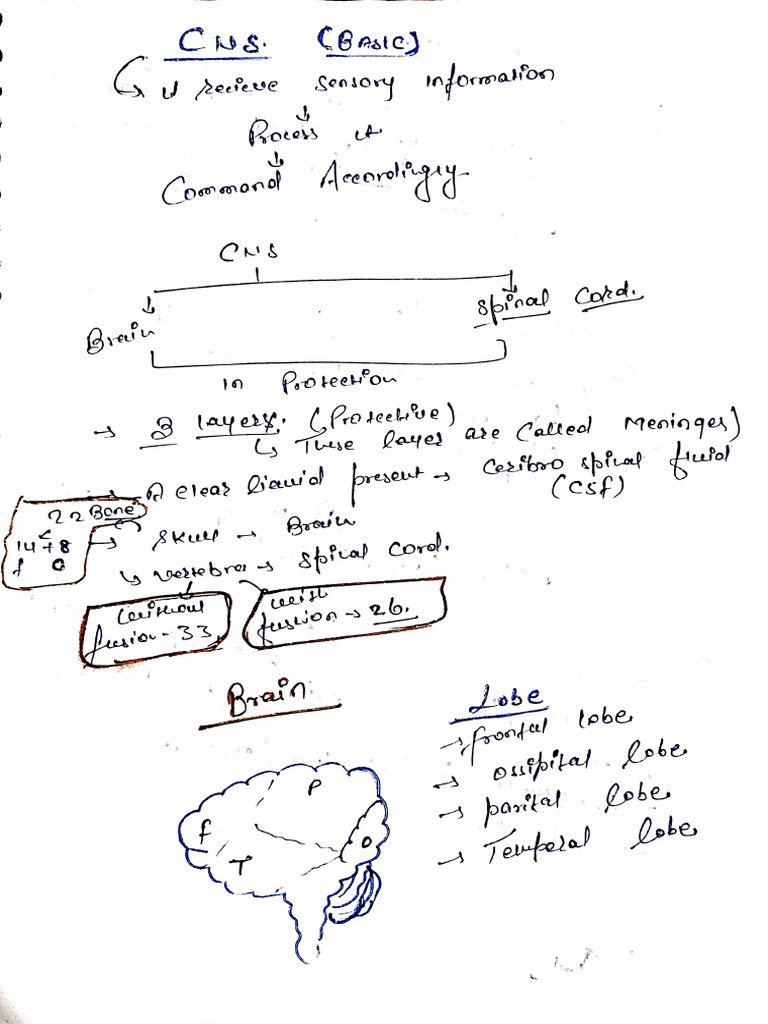 CNS. (BASIC)
↳ It recieve sensory information
↓
Process it
↓
Command Accordingly
CNS
Brain
Spinal Cord.
In Protection
→ 3 layers. (Protective)
↳ These layer are (called Meninges)
→ A clear liquid present → Ceribro spinal fluid
(CSF)
22 Bone
14 + 8
f C
→ Skull → Brain
↳ vertebra → Spinal Cord.
without
fusion - 33
with
fusion → 26.
Brain
Lobe
→ frontal lobe
→ ossipital lobe
→ parital lobe
→ Temporal lobe
P
f
O
T